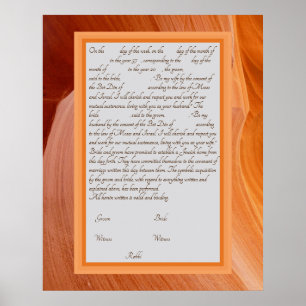 On the day of the week, on the day of the month of
in the year 57 , corresponding to the day of
of in the year 20 , the groom,
said to the bride, : Be my wife by the consent of
the Beit Din of according to the law of Moses
and Israel. I will cherish and respect you and work for our
mutual sustenance, living with you as your husband." The
bride, said to the groom, : Be my
husband by the consent of the Beit Din of according
to the law of Moses and Israel. I will cherish and respect you
and work for our mutual sustenance, living with you as your wife."
Bride and groom have promised to establish a Jewish home from
this day forth. They have committed themselves to the covenant of
marriage written this day between them. The symbolic acquisition
by the groom and bride, with regard to everything written and
explained above, has been performed.
All herein written is valid and binding.
Groom Bride
Witness Witness
Rabbi